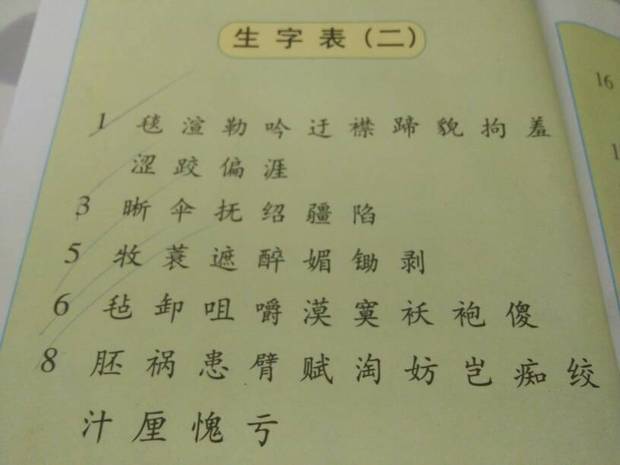 生字表(二)
16
1 毯 渲 勒 吟 迂 襟 蹄 貌 拘 羞
涩 跤 偏 涯
3 晰 伞 抚 绍 疆 陷
5 牧 蓑 遮 醉 媚 锄 剥
6 毡 卸 咀 嚼 漠 寞 袄 袍 傻
8 胚 祸 患 臂 赋 淘 妨 岂 痴 绞
汁 厘 愧 亏